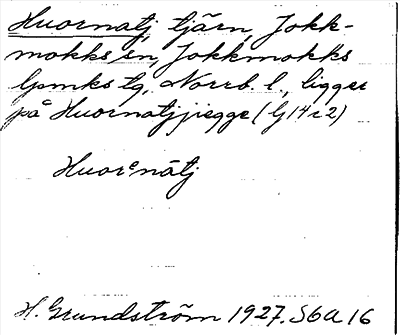 Huornatj, tjärn, Jokk-
mokks sn, Jokkmokks
lpmks tg, Norrb. l., ligger
på Huornatjjiegge (G14r2)
Huorᵉnātj
H. Grundström 1927. S6a 16